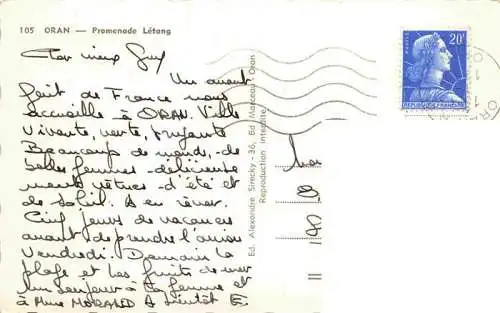 105 ORAN — Promenade Létang
Cher vieux Guy
Un avant
goût de France nous
accueille à ORAN. Ville
Vivante, verte,
Beaucoup de monde, de
belles femmes délicieuse
ments vêtues d'été et
de soleil. A en rêver.
Cinq jours de vacances
avant de prendre l'avion
Vendredi. Demain la
plage et les fruits de mer
Un bonjour à ta femme et
à Mme A bientôt
Ed. Alexandre Sirecky - 36, Bd Marceau - Oran
Reproduction interdite
POSTES 20F
RÉPUBLIQUE FRANÇAISE